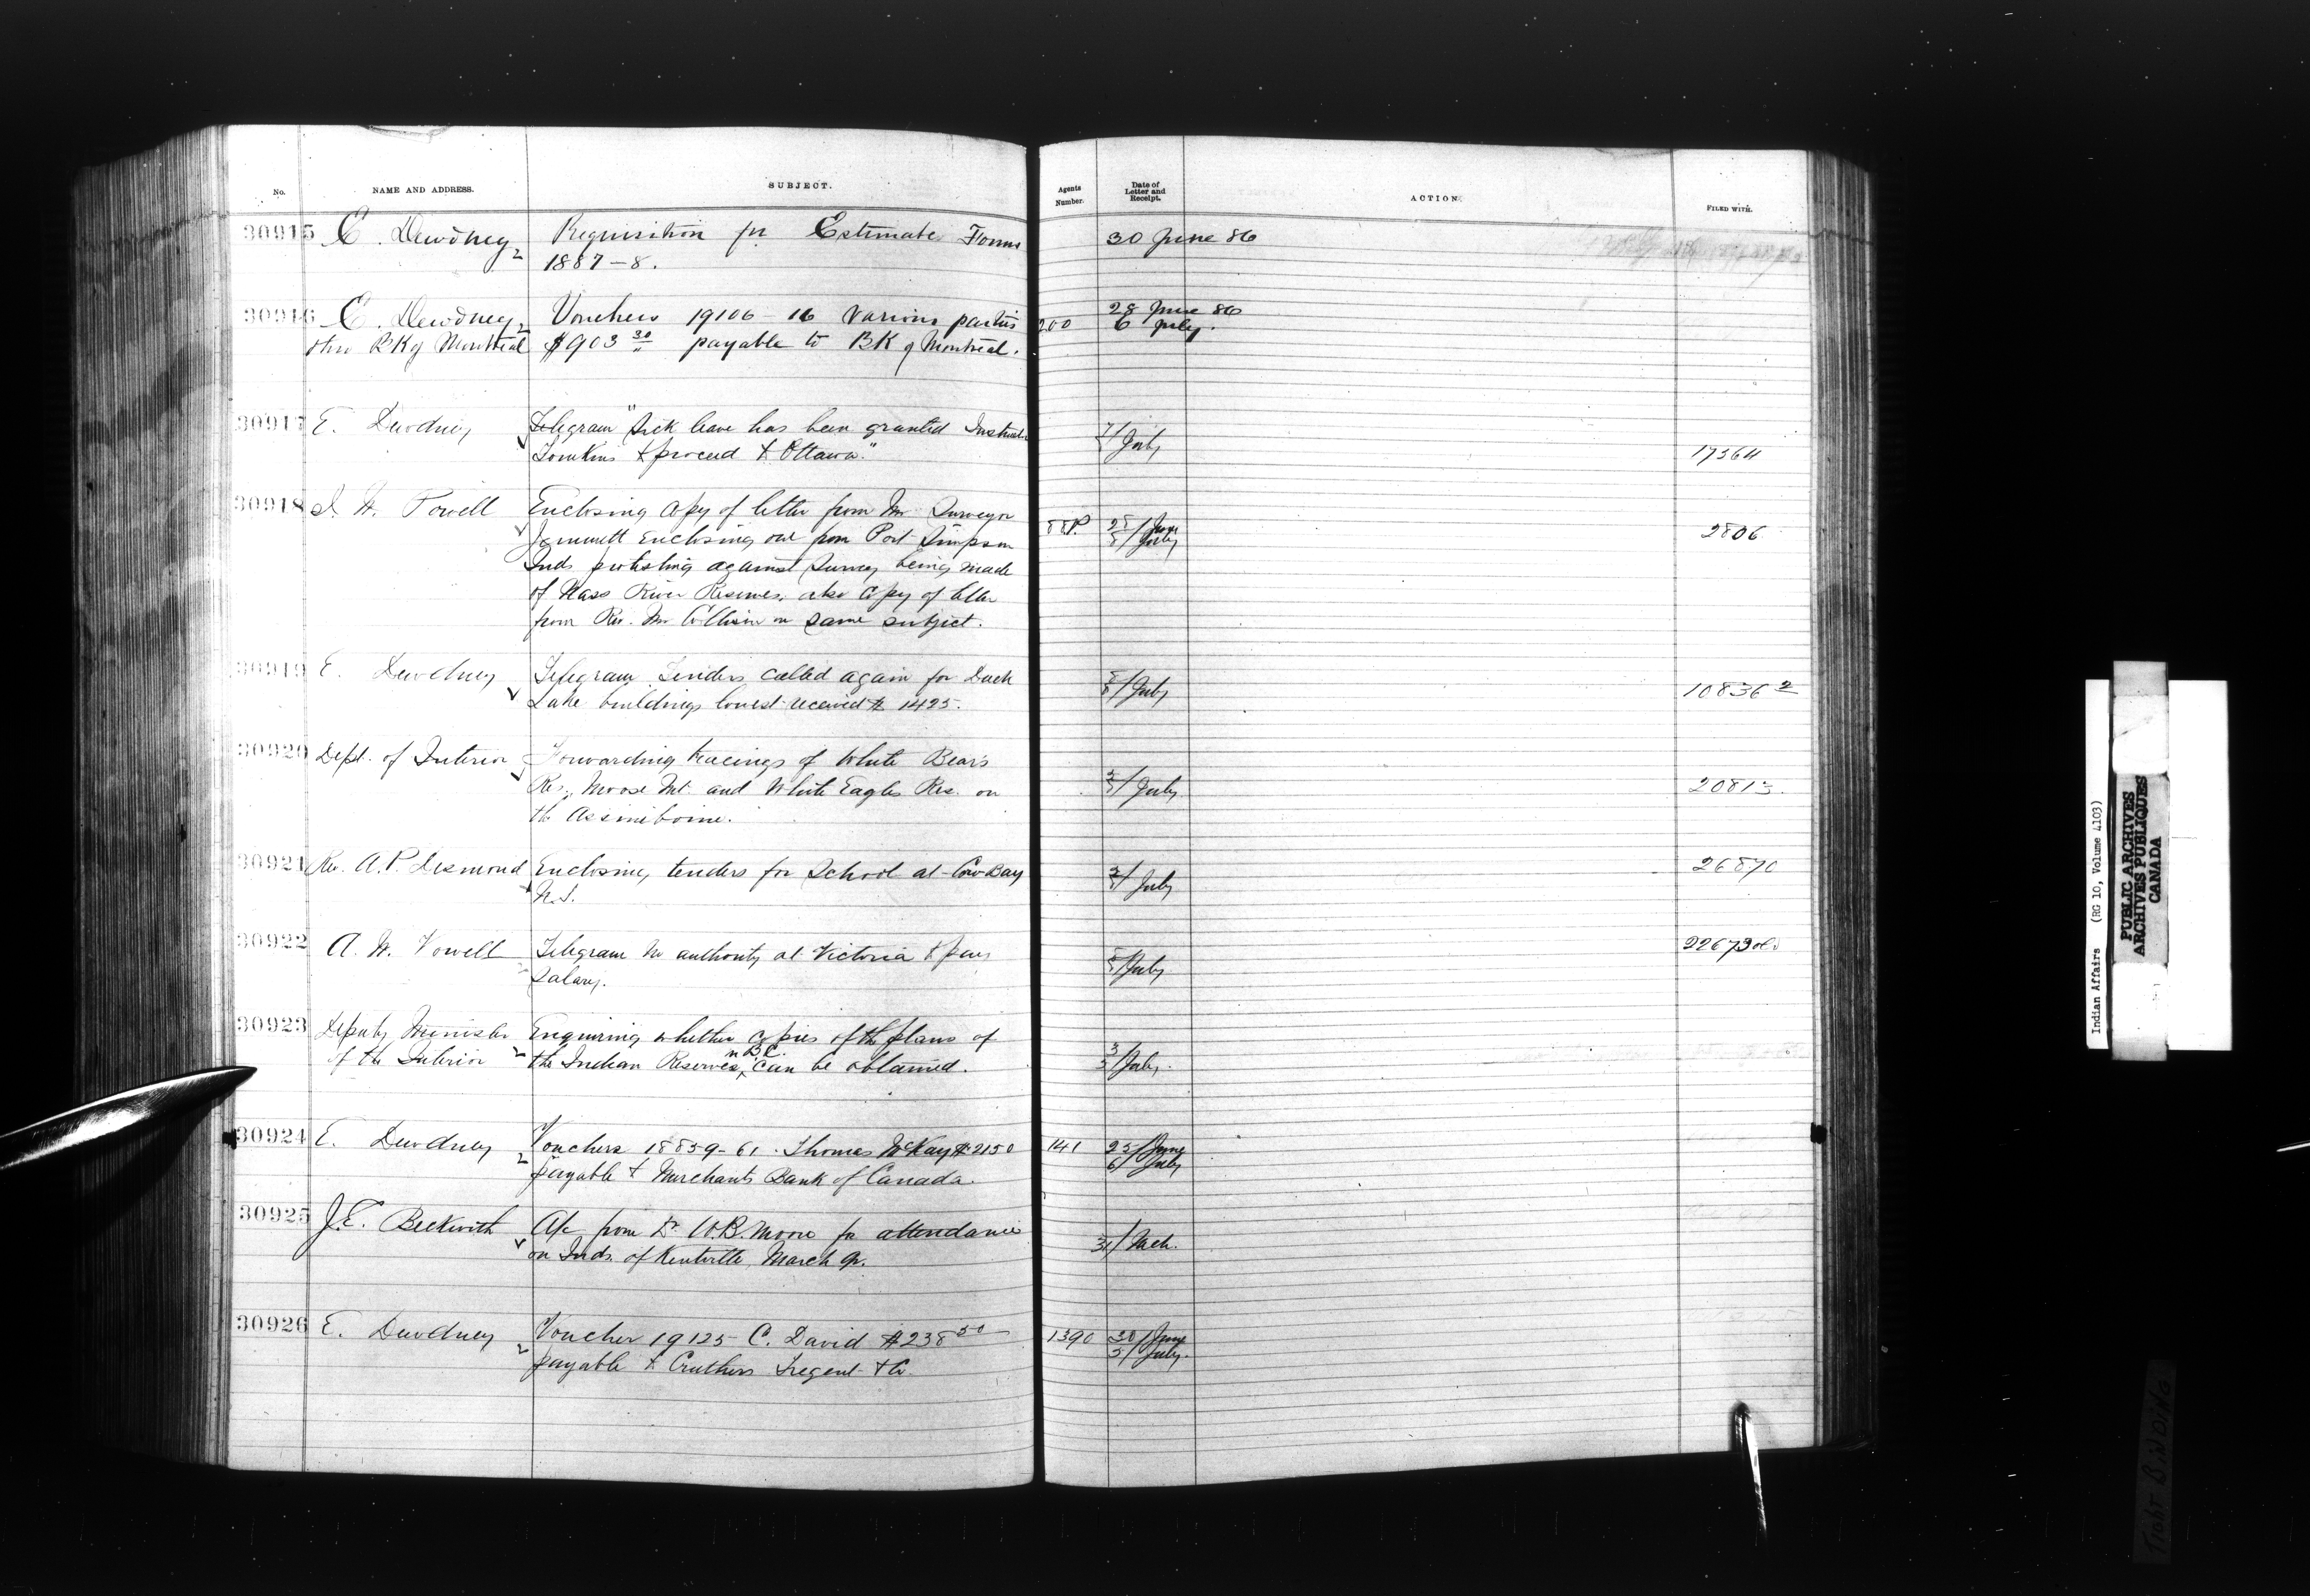 No. NAME AND ADDRESS. SUBJECT. Agents Number. Date of Letter and Receipt. ACTION. FILED WITH.
30915 E. Dewdney 2 Requisition for Estimate Forms 30 June 86
1887-8.
30916 E. Dewdney 2 Vouchers 19106-16 various parties 200 28 June 86
thro BK of Montreal $903 30 payable to BK of Montreal. 6 July.
30917 E. Dewdney Telegram "Sick leave has been granted 7/July
Tomkins to proceed to Ottawa." 17364
30918 I. W. Powell Enclosing copy of letter from Mr Surveyor
Jemmett enclosing one from Port Simpson 88P. 28/June 8/July 2806
Inds protesting against survey being made
of Nass River Reserves. also copy of letter
from Rev. Mr Collison on same subject.
30919 E. Dewdney Telegram Tenders called again for Duck 8/July 10836 2
Lake buildings lowest received $1425.
30920 Dept. of Interior Forwarding tracings of White Bear's
Res. Moose Mt. and White Eagles Res. on July 20813.
the Assiniboine.
30921 Rev. A. P. Desmond Enclosing tenders for School at Cow Bay July 26870
N.S.
30922 A. W. Vowell Telegram no authority at Victoria to pay July 22673
Salary.
30923 Deputy Minister Enquiring whether copies of the plans of
of the Interior 2 the Indian Reserves, in B.C. can be obtained. 3/5 July.
30924 E. Dewdney 2 Vouchers 18859-61. Thomas McKay $2150 141 25/June
payable to Merchants Bank of Canada. 6/July
30925 J.E. Beckwith A/c from Dr. W.B. Moore for attendance
on Inds. of Kentville, March qr. 31/Mch.
30926 E. Dewdney 2 Voucher 19125 C. David $238 50 1390 30/June
payable to Cruthers Tregent & Co. 5/July.
Indian Affairs (RG 10, Volume 4103)
PUBLIC ARCHIVES
ARCHIVES PUBLIQUES
CANADA
TIGHT BINDING